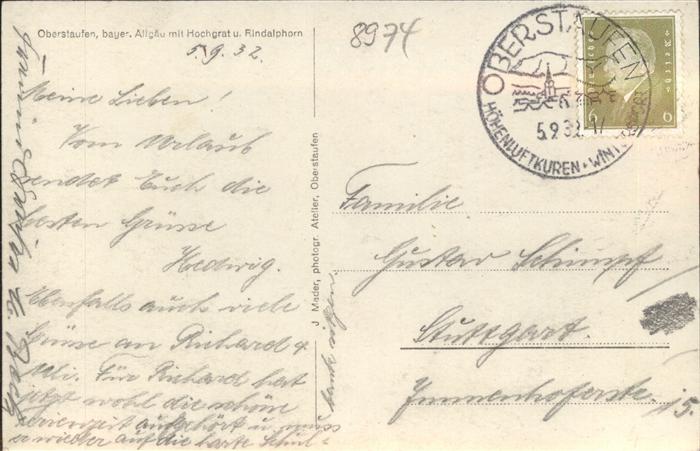 Oberstaufen, bayer. Allgäu mit Hochgrat u. Rindalphorn
5.9.32.
8974
Meine Lieben!
Vom Urlaub
sendet Euch die
besten Grüsse
Hedwig.
Ebenfalls auch viele
Grüsse an Richard &
Uli. Für Richard hat
jetzt wohl die schöne
Ferienzeit aufgehört u. muss
er wieder auf die harte Schul=
bank sitzen.
J Mader, photogr. Atelier, Oberstaufen
OBERSTAUFEN
5.9.32
HÖHENLUFTKUREN + WINTERSPORT
Deutsches Reich
6 6
Familie
Gustav Schimpf
Stuttgart.
Immenhoferstr. 15